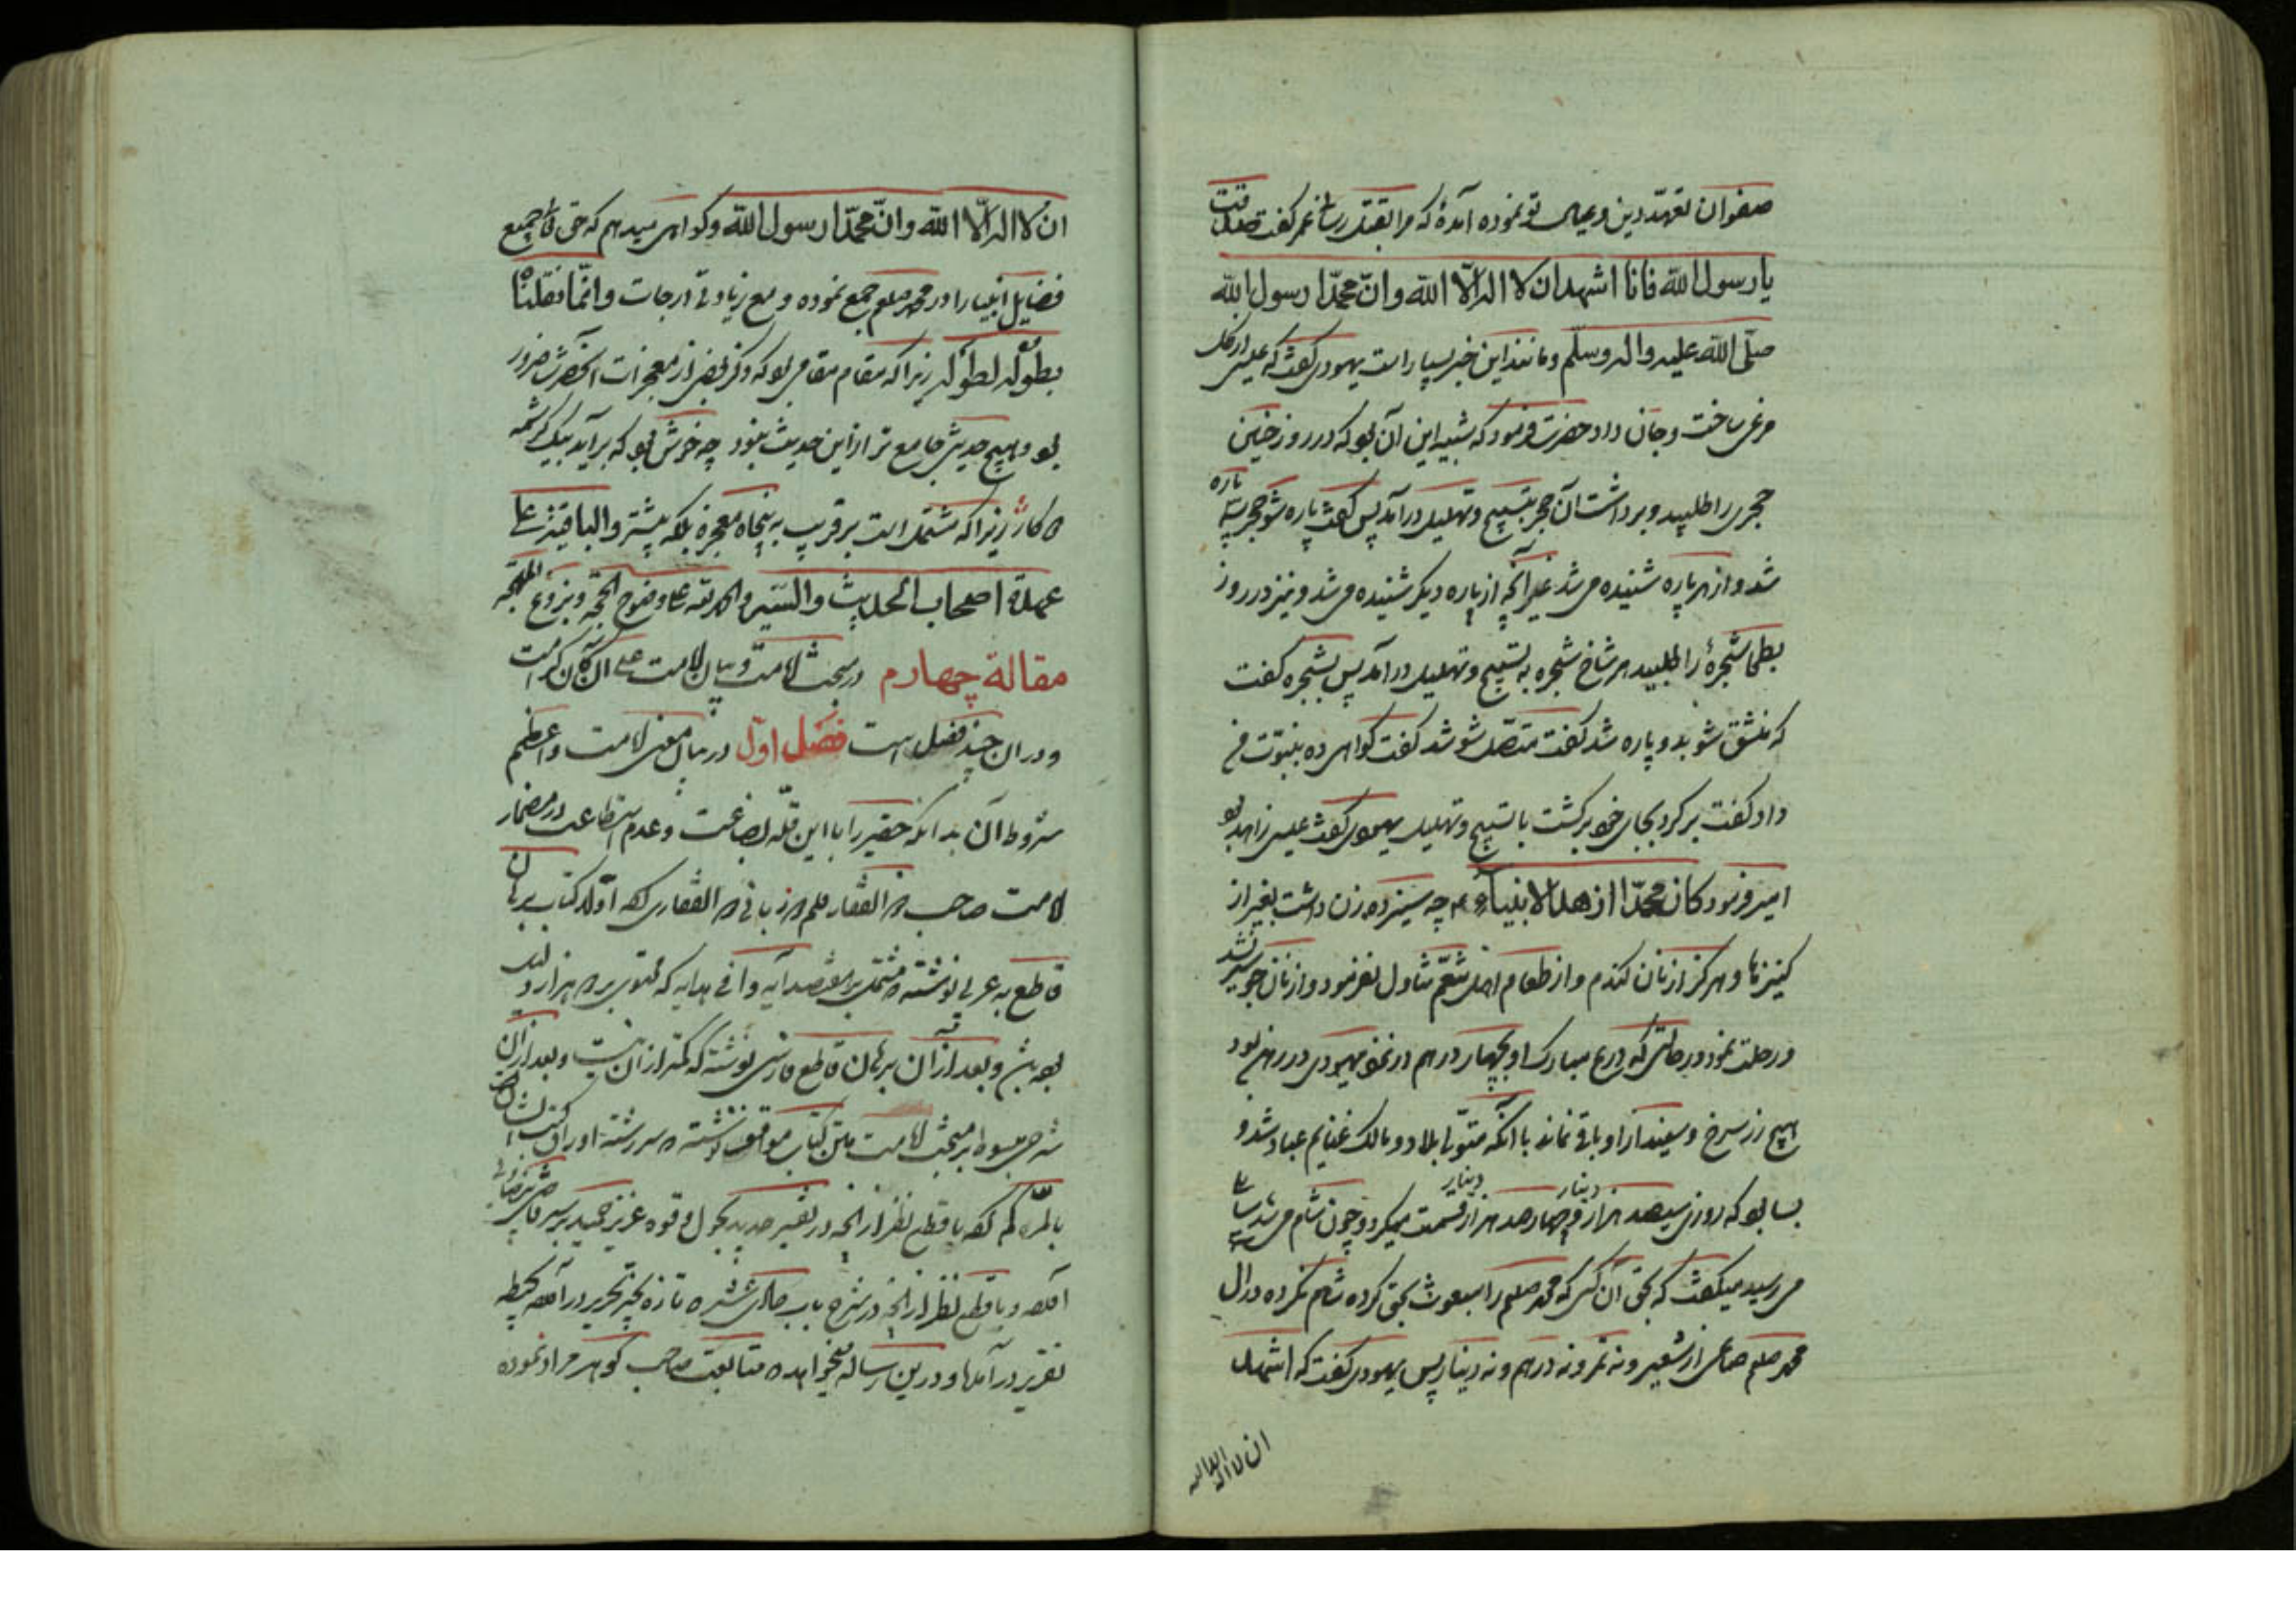 صفوان تعهّد دین و عیال تو نموده آمدهٔ که مرا بقتل رسانی عمر گفت صدقت
یا رسول الله فانا اشهد ان لا اله الّا الله وانّ محمّدا رسول الله
صلّی الله علیه واله وسلّم و مانند این خبر بسیار است یهودی گفت که عیسی از گل
مرغی ساخت و جان داد حضرت فرمود که شبیه این آن بود که در روز حنین
حجری را طلبید و برداشت آن حجر بتسبیح و تهلیل درآمد پس گفت پاره شو حجر سه پاره
شد و از هر پاره شنیده می شد غیر آنچه از پاره دیگر شنیده می شد و نیز در روز
بطحا شجرهٔ را طلبید هر شاخ شجره به تسبیح و تهلیل درآمد پس بشجره گفت
که منشق شو بدو پاره شد گفت متصل شو شد گفت گواهی ده بنبوّت من
داد گفت برگرد بجای خود برگشت با تسبیح و تهلیل یهودی گفت عیسی زاهد بود
امیر فرمود کان محمّدا ازهد الانبیاء چه سیزده زن داشت بغیر از
کنیزها و هرگز از نان گندم و از طعام اهل تنعّم تناول نفرمود و از نان جو سیر نشد
و رحلت نمود در حالتی که درع مبارک او بچهار درهم در نزد یهودی در رهن بود
هیچ زر سرخ و سفید از او باقی نماند با آنکه متولّی بلاد و مالک غنایم عباد شد و
بسا بود که روزی سیصد هزار دینار و چهارصد هزار دینار قسمت میکرد و چون شام می شد سائلی
می رسید میگفت که بحق آن کسی که محمد صلعم را مبعوث بحق کرده شام نکرده در آل
محمد صلعم صاعی از شعیر و نه تمر و نه درهم و نه دینار پس یهودی گفت که اشهد
ان لا اله الا الله
ان لا اله الّا الله وانّ محمّدا رسول الله و گواهی میدهم که حق تعالی جمیع
فضایل انبیا را در محمد صلعم جمع نموده و مع زیادتی درجات وانّما نقلناه
بطوله لطوله زیرا که مقام مقامی بود که ذکر بعضی از معجزات آنحضرت ضرور
بود و هیچ حدیثی جامع تر از این حدیث نبود چه خوش بود که برآید بیک کرشمه
دو کار زیرا که مشتمل است بر قریب به پنجاه معجزه بلکه بیشتر والباقیة علی
عمدة اصحاب الحدیث والسّیر والحمد لله علی وضوح الحجّة
مقالة چهارم در مبحث امامت و بیان امامت
و در ان چند فصل است فصل اوّل در بیان معنی امامت و اعظم
شروط آن بدانکه حقیر را با این قلّه بضاعت و عدم استطاعت در مضمار
امامت صاحب ذو الفقار قلم و زبانی ذو الفقاری بوده اولا کتاب برهان
قاطع به عربی نوشته و مشتمل
بود و بعد از آن برهان قاطع فارسی نوشته که کمتر از آن نیست و بعد از آن
شرحی مبسوط بر مبحث امامت متن کتاب مواقف نوشته و سررشته اوراق
بالمرّه گم بوده با قطع نظر از آنچه در تفسیر
آمده و با قطع نظر از آنچه در شرح باب حادی عشر
تقریر در آمده و درین رساله میخواهد متابعت صاحب گوهر مراد نموده